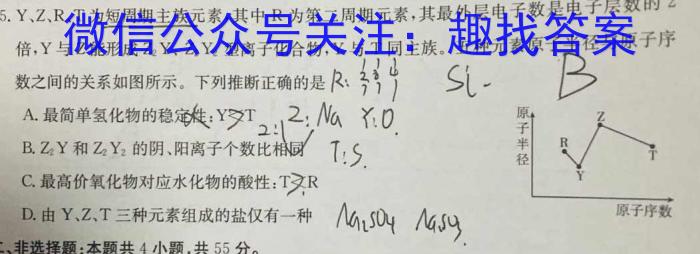 5. Y、Z、R、T为短周期主族元素,其中R为第二周期元素,其最外层电子数是电子层数的2
微信公众号关注：趣找答案
倍,Y与Z能形成 同主族。 原子序
数之间的关系如图所示。下列推断正确的是 R:
Si B
A. 最简单氢化物的稳定性:Y>T Z: Na Y:O
B. Z₂Y和Z₂Y₂的阴、阳离子个数比相同 T:S
C. 最高价氧化物对应水化物的酸性:T>R
D. 由Y、Z、T三种元素组成的盐仅有一种 Na₂SO₄
原子半径
R
Y
Z
T
原子序数
二、非选择题:本题共4小题,共55分。